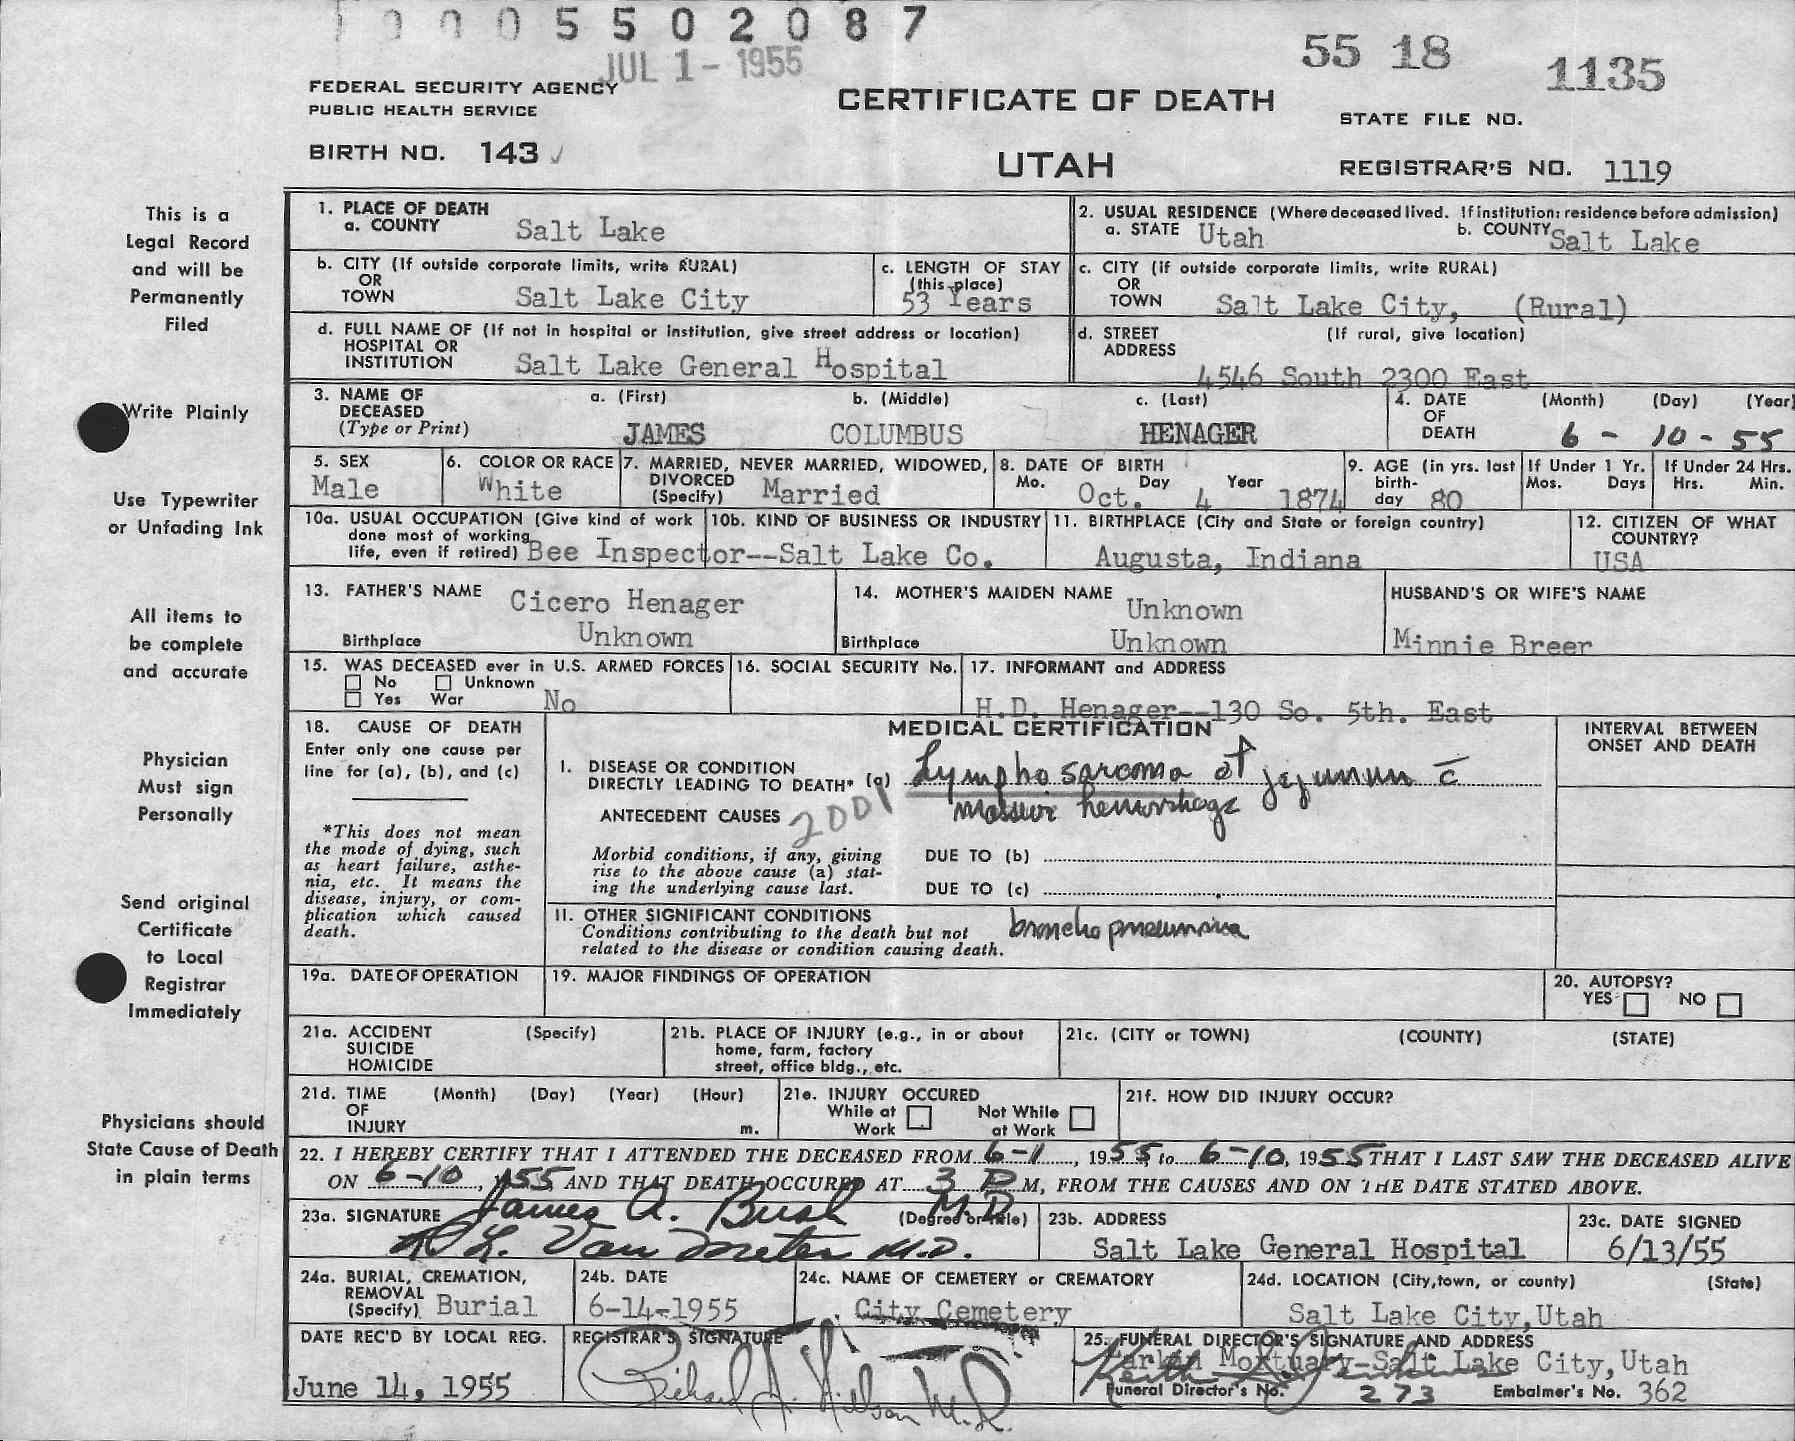 5 5 0 2 0 8 7
JUL 1 - 1955
55 18 1135
FEDERAL SECURITY AGENCY
PUBLIC HEALTH SERVICE
CERTIFICATE OF DEATH
STATE FILE NO.
BIRTH NO. 143
UTAH
REGISTRAR'S NO. 1119
This is a
Legal Record
and will be
Permanently
Filed
Write Plainly
Use Typewriter
or Unfading Ink
All items to
be complete
and accurate
Physician
Must sign
Personally
Send original
Certificate
to Local
Registrar
Immediately
Physicians should
State Cause of Death
in plain terms
1. PLACE OF DEATH
a. COUNTY Salt Lake
2. USUAL RESIDENCE (Where deceased lived. If institution: residence before admission)
a. STATE Utah b. COUNTY Salt Lake
b. CITY (If outside corporate limits, write RURAL)
OR
TOWN Salt Lake City
c. LENGTH OF STAY
(this place)
53 Years
c. CITY (if outside corporate limits, write RURAL)
OR
TOWN Salt Lake City, (Rural)
d. FULL NAME OF (If not in hospital or institution, give street address or location)
HOSPITAL OR
INSTITUTION Salt Lake General Hospital
d. STREET (If rural, give location)
ADDRESS
4546 South 2300 East
3. NAME OF a. (First) b. (Middle) c. (Last)
DECEASED
(Type or Print) JAMES COLUMBUS HENAGER
4. DATE (Month) (Day) (Year)
OF
DEATH 6 - 10 - 55
5. SEX
Male
6. COLOR OR RACE
White
7. MARRIED, NEVER MARRIED, WIDOWED,
DIVORCED
(Specify) Married
8. DATE OF BIRTH
Mo. Day Year
Oct. 4 1874
9. AGE (in yrs. last
birth-
day 80
If Under 1 Yr.
Mos. Days
If Under 24 Hrs.
Hrs. Min.
10a. USUAL OCCUPATION (Give kind of work
done most of working
life, even if retired) Bee Inspector--Salt Lake Co.
10b. KIND OF BUSINESS OR INDUSTRY
11. BIRTHPLACE (City and State or foreign country)
Augusta, Indiana
12. CITIZEN OF WHAT
COUNTRY?
USA
13. FATHER'S NAME Cicero Henager
Birthplace Unknown
14. MOTHER'S MAIDEN NAME Unknown
Birthplace Unknown
HUSBAND'S OR WIFE'S NAME
Minnie Breer
15. WAS DECEASED ever in U.S. ARMED FORCES
No Unknown
Yes War No
16. SOCIAL SECURITY No.
17. INFORMANT and ADDRESS
H.D. Henager--130 So. 5th. East
18. CAUSE OF DEATH
Enter only one cause per
line for (a), (b), and (c)
*This does not mean
the mode of dying, such
as heart failure, asthe-
nia, etc. It means the
disease, injury, or com-
plication which caused
death.
MEDICAL CERTIFICATION
INTERVAL BETWEEN
ONSET AND DEATH
I. DISEASE OR CONDITION
DIRECTLY LEADING TO DEATH* (a) Lymphosarcoma of jejunum c̄
massive hemorrhage
ANTECEDENT CAUSES 2001
Morbid conditions, if any, giving
rise to the above cause (a) stat-
ing the underlying cause last.
DUE TO (b)
DUE TO (c)
II. OTHER SIGNIFICANT CONDITIONS
Conditions contributing to the death but not
related to the disease or condition causing death.
bronchopneumonia
19a. DATE OF OPERATION
19. MAJOR FINDINGS OF OPERATION
20. AUTOPSY?
YES NO
21a. ACCIDENT (Specify)
SUICIDE
HOMICIDE
21b. PLACE OF INJURY (e.g., in or about
home, farm, factory
street, office bldg., etc.
21c. (CITY or TOWN) (COUNTY) (STATE)
21d. TIME (Month) (Day) (Year) (Hour)
OF
INJURY m.
21e. INJURY OCCURED
While at Not While
Work at Work
21f. HOW DID INJURY OCCUR?
22. I HEREBY CERTIFY THAT I ATTENDED THE DECEASED FROM 6-1, 1955 to 6-10, 1955 THAT I LAST SAW THE DECEASED ALIVE
ON 6-10, 1955 AND THAT DEATH OCCURED AT 3 P M, FROM THE CAUSES AND ON THE DATE STATED ABOVE.
23a. SIGNATURE James A. Bush M.D. (Degree or title)
L. Van Meter M.D.
23b. ADDRESS
Salt Lake General Hospital
23c. DATE SIGNED
6/13/55
24a. BURIAL, CREMATION,
REMOVAL
(Specify) Burial
24b. DATE
6-14-1955
24c. NAME OF CEMETERY or CREMATORY
City Cemetery
24d. LOCATION (City, town, or county) (State)
Salt Lake City, Utah
DATE REC'D BY LOCAL REG.
June 14, 1955
REGISTRAR'S SIGNATURE
Richard
25. FUNERAL DIRECTOR'S SIGNATURE AND ADDRESS
Mortuary-Salt Lake City, Utah
Keith
Funeral Director's No. 273 Embalmer's No. 362